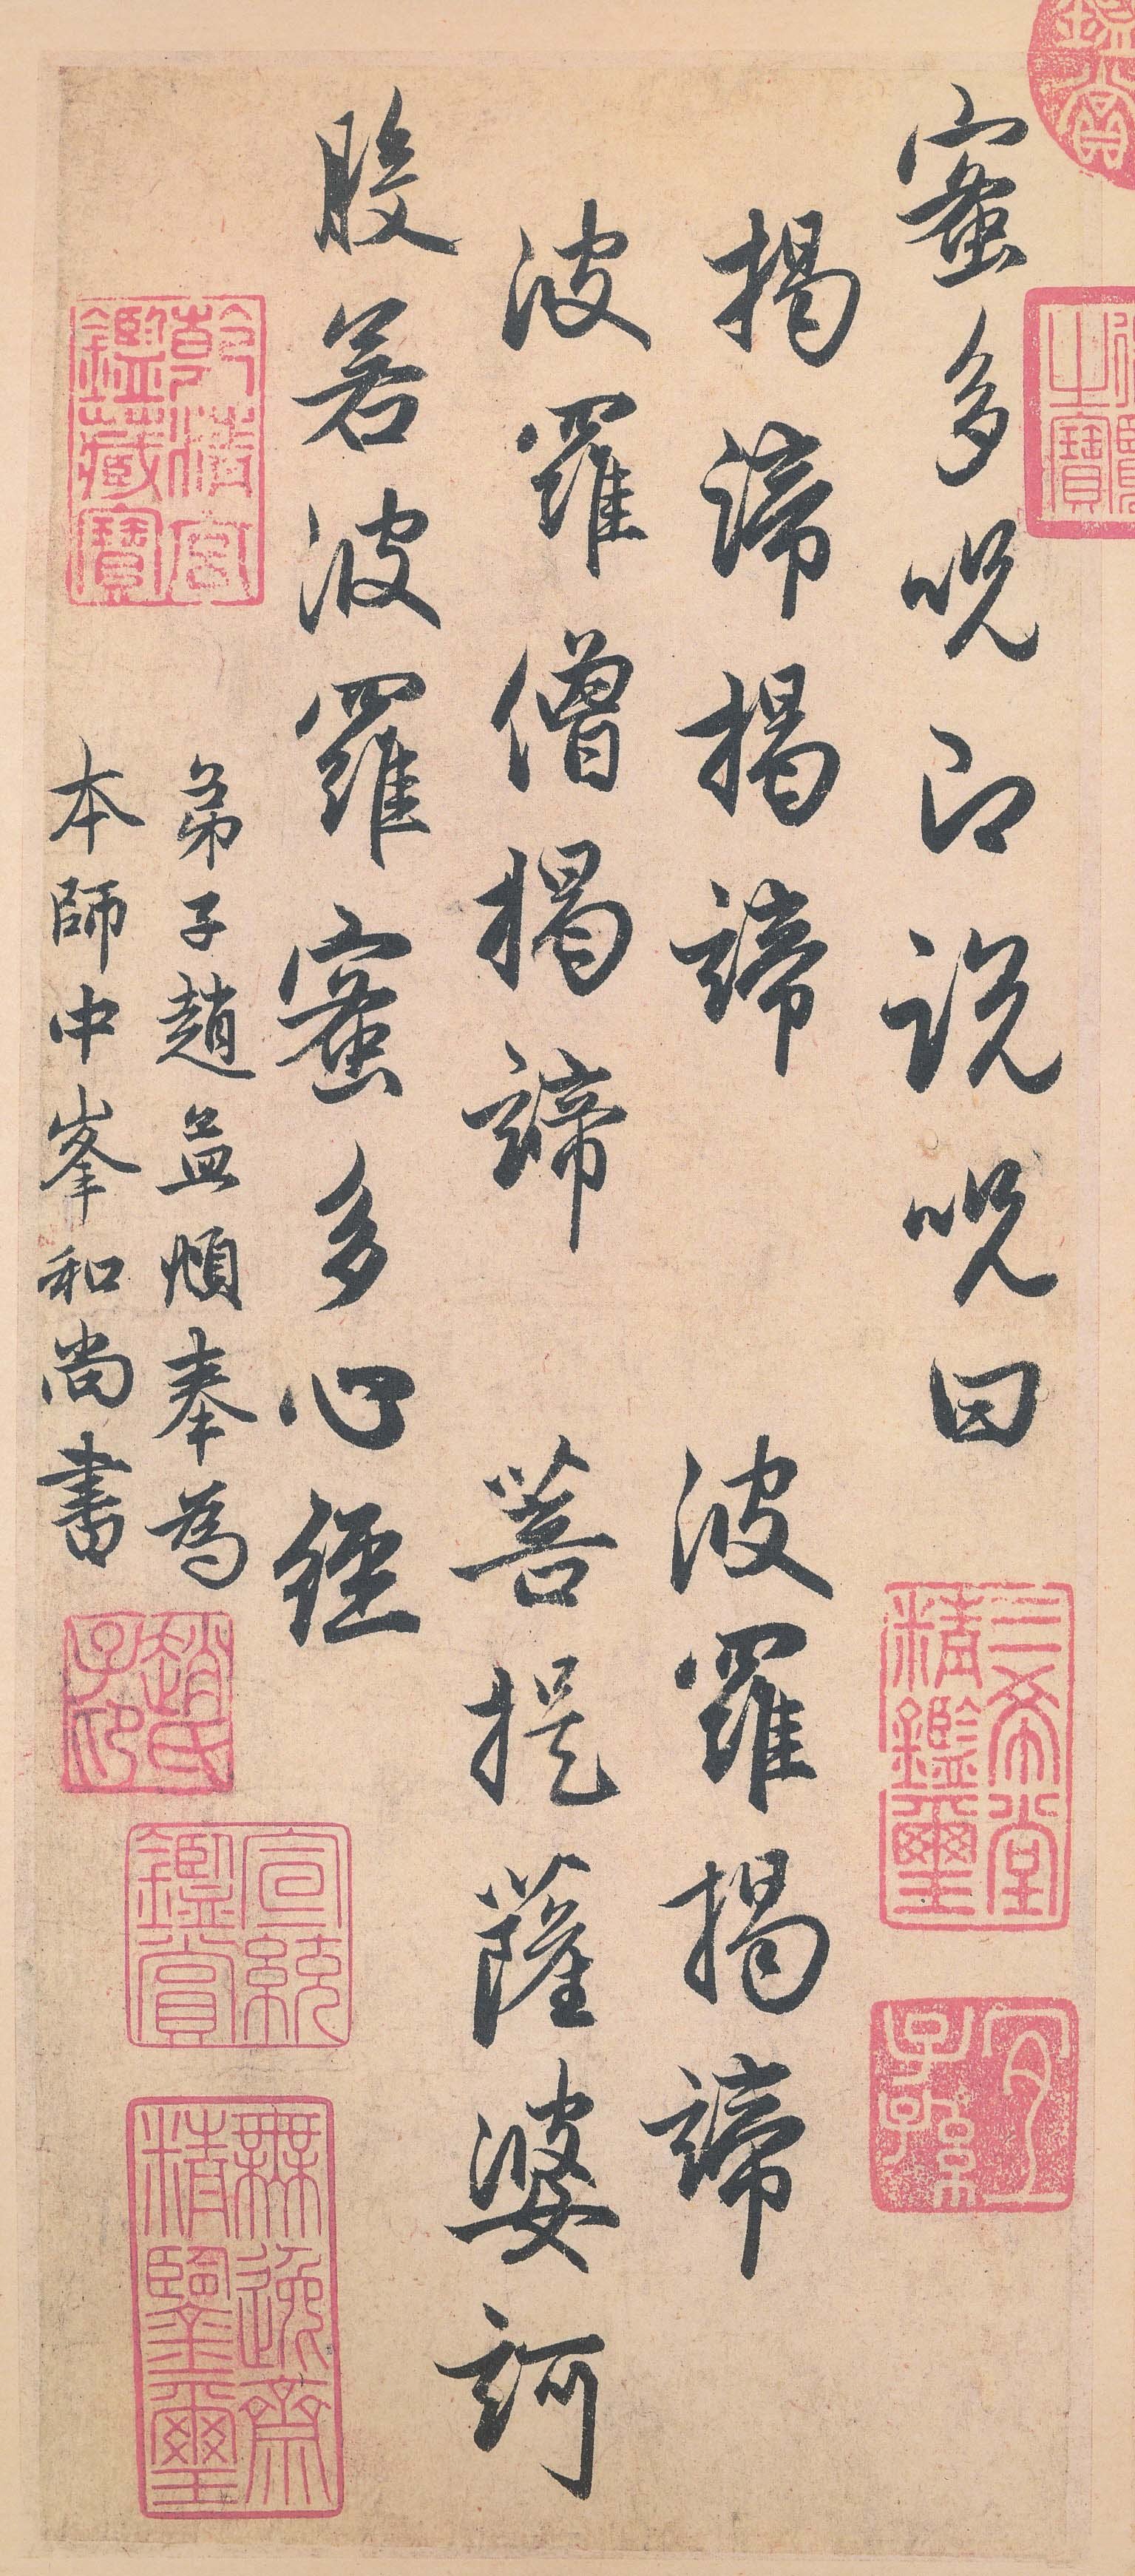 蜜多呪即說呪曰
揭諦揭諦 波羅揭諦
波羅僧揭諦 菩提薩婆訶
般若波羅蜜多心經
弟子趙孟頫奉為
本師中峯和尚書
鑑賞
覽之寶
三希堂精鑑璽
宜子孫
乾清宮鑑藏寶
趙氏子昂
宣統鑑賞
無逸齋精鑒璽